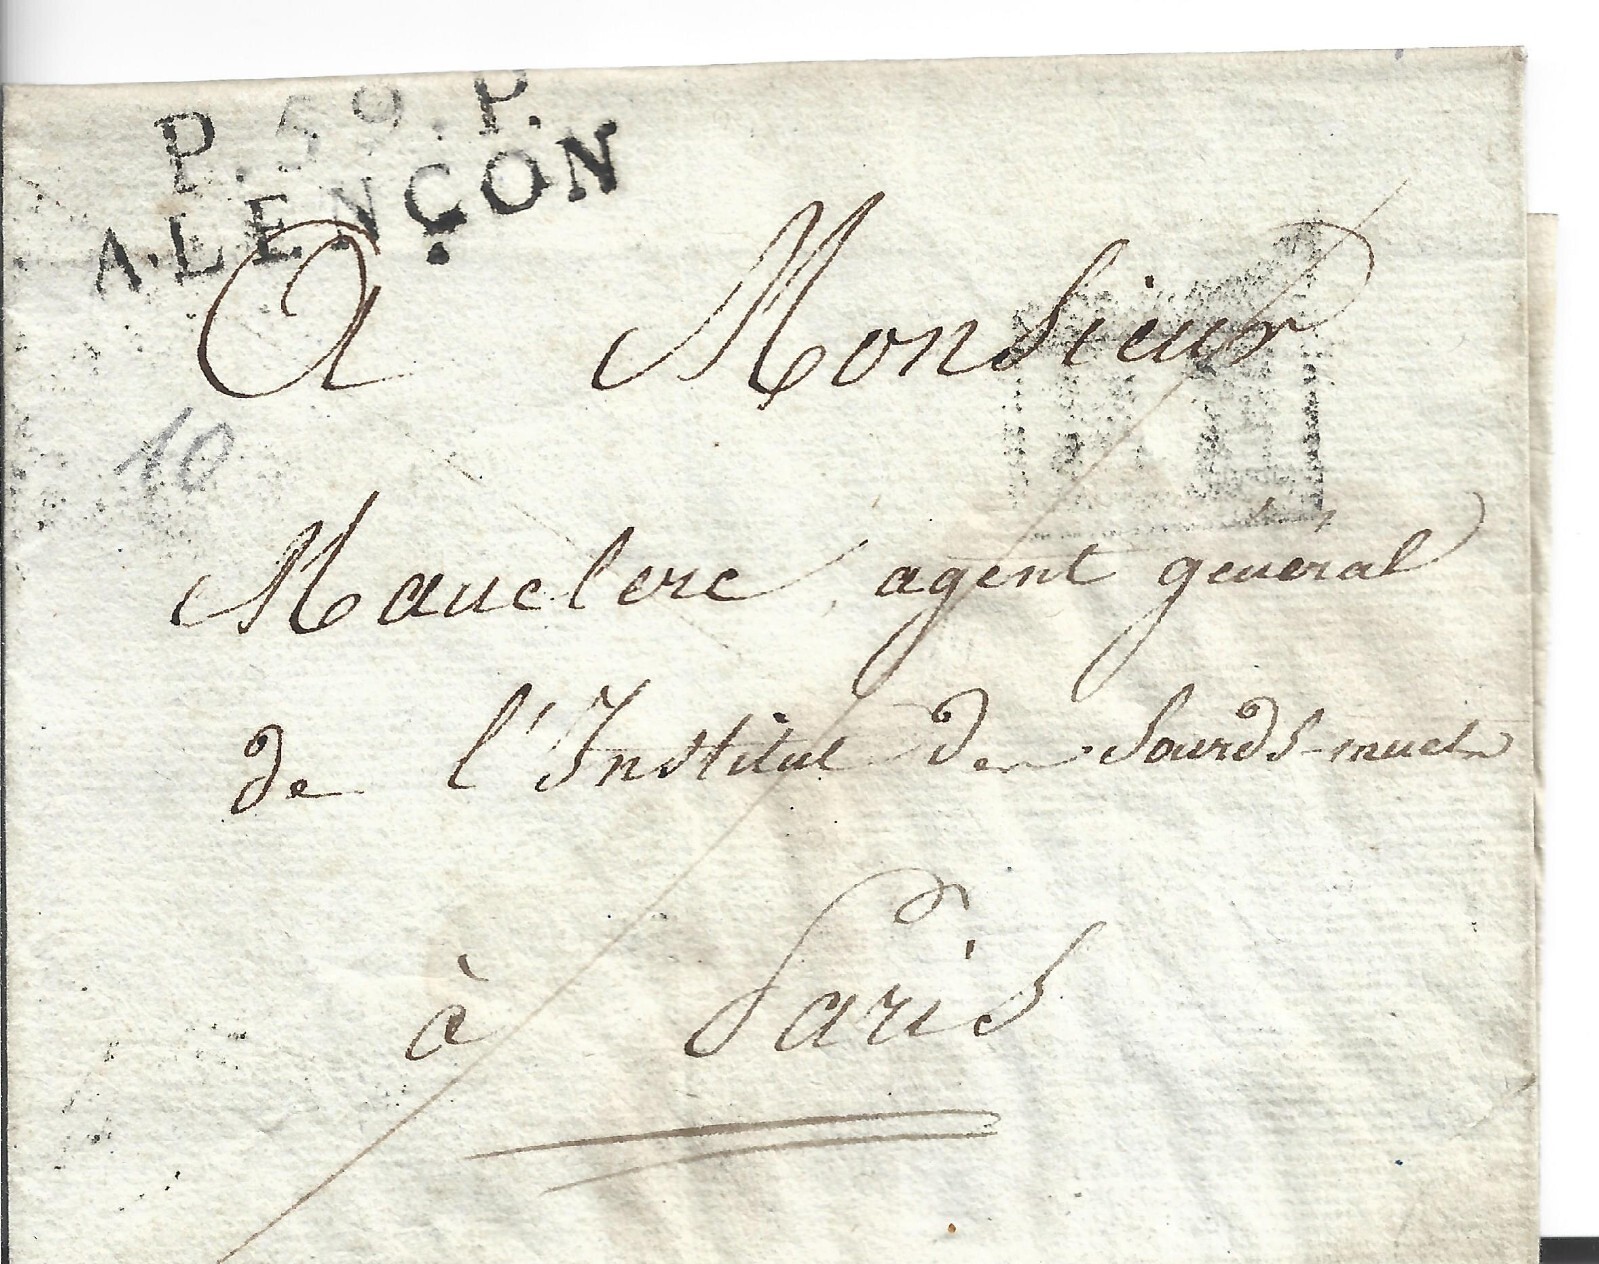 P.59.P.
ALENÇON
A Monsieur
10
Mauclerc, agent général
de l'Institut des Sourds-muets
à Paris